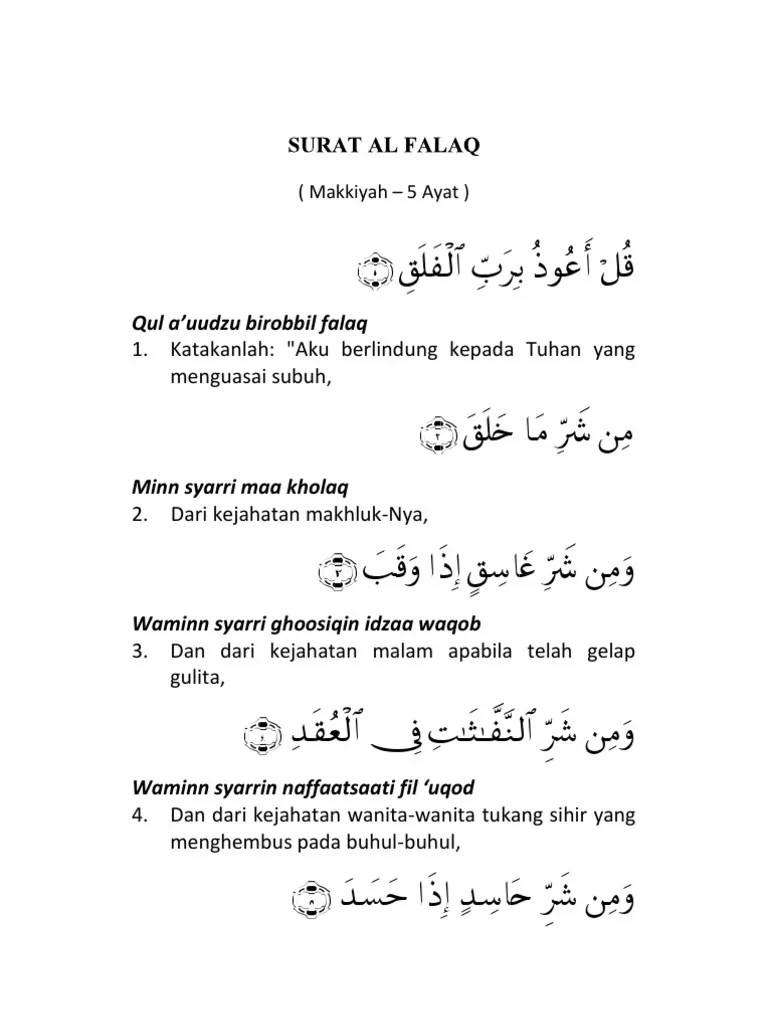 SURAT AL FALAQ
( Makkiyah – 5 Ayat )
قُلْ أَعُوذُ بِرَبِّ ٱلْفَلَقِ ١
Qul a’uudzu birobbil falaq
1. Katakanlah: "Aku berlindung kepada Tuhan yang
menguasai subuh,
مِن شَرِّ مَا خَلَقَ ٢
Minn syarri maa kholaq
2. Dari kejahatan makhluk-Nya,
وَمِن شَرِّ غَاسِقٍ إِذَا وَقَبَ ٣
Waminn syarri ghoosiqin idzaa waqob
3. Dan dari kejahatan malam apabila telah gelap
gulita,
وَمِن شَرِّ ٱلنَّفَّـٰثَـٰتِ فِى ٱلْعُقَدِ ٤
Waminn syarrin naffaatsaati fil ‘uqod
4. Dan dari kejahatan wanita-wanita tukang sihir yang
menghembus pada buhul-buhul,
وَمِن شَرِّ حَاسِدٍ إِذَا حَسَدَ ٥